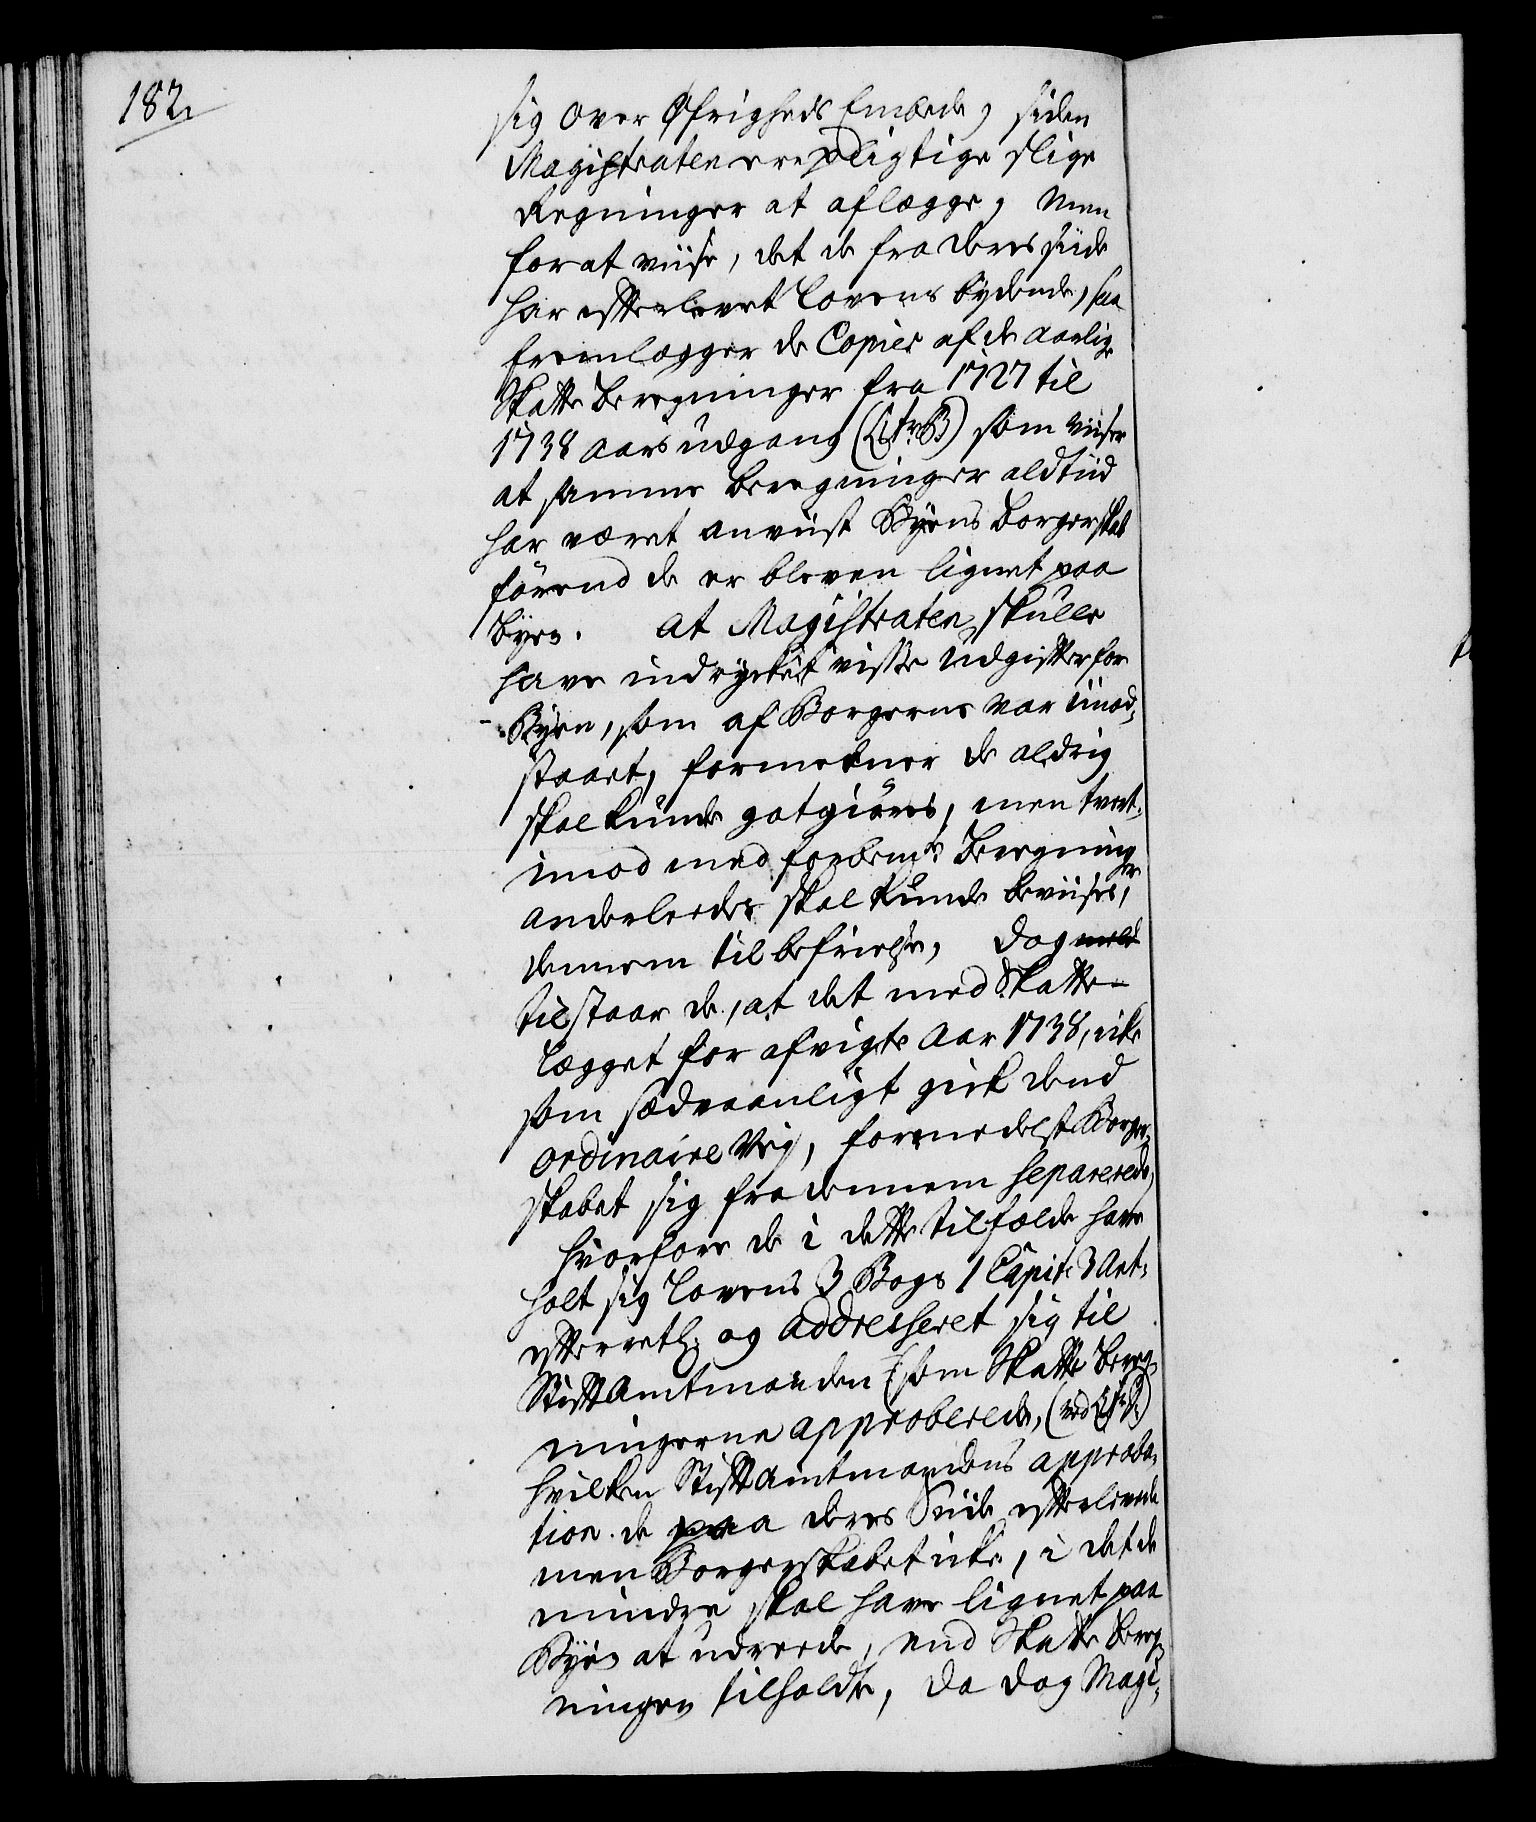 182.
sig over Øfrigheds Embede, siden
Magistraten ere pligtige slige
Regninger at aflægge, men
for at viise, det de fra deres siide
har efterlevet Lovens bydende, saa
fremlægger de Copier af de aarlige
Skatte Beregninger fra 1727 til
1738 aars udgang (Litr. B) som viiser
at samme beregninger altiid
har været anviist Byens Borgerskab
førend de er bleven lignet paa
Byen. At Magistraten skulle
have indrycket visse udgifter for
Byen, som af Borgerne var imod-
staaet, formeener de aldrig
skal kunde gotgiøres, men tvert-
imod med forbemte Beregninger
anderleedes skal kunde beviises,
dennem til befrielse, dog
tilstaar de, at det med Skatte-
lægget for afvigte Aar 1738, icke
som sædvaanligt gick dend
ordinaire Vej, formedelst Borger-
skabet sig fra dennem separerede,
hvorfore de i dette tilfælde have
holt sig Lovens 3 Bogs 1 Capit: 3 Art:
efterrettl: og addresseret sig til
Stiftamtmanden (som Skatte Bereg-
ningerne approberede,
hvilken Stiftamtmandens approba-
tion de paa deres Siide efterlevede
men Borgerskabet icke, i det de
mindre skal have lignet paa
Byen at udreede, end Skatte Bereg-
ningen tilholdte, da dog Magi-